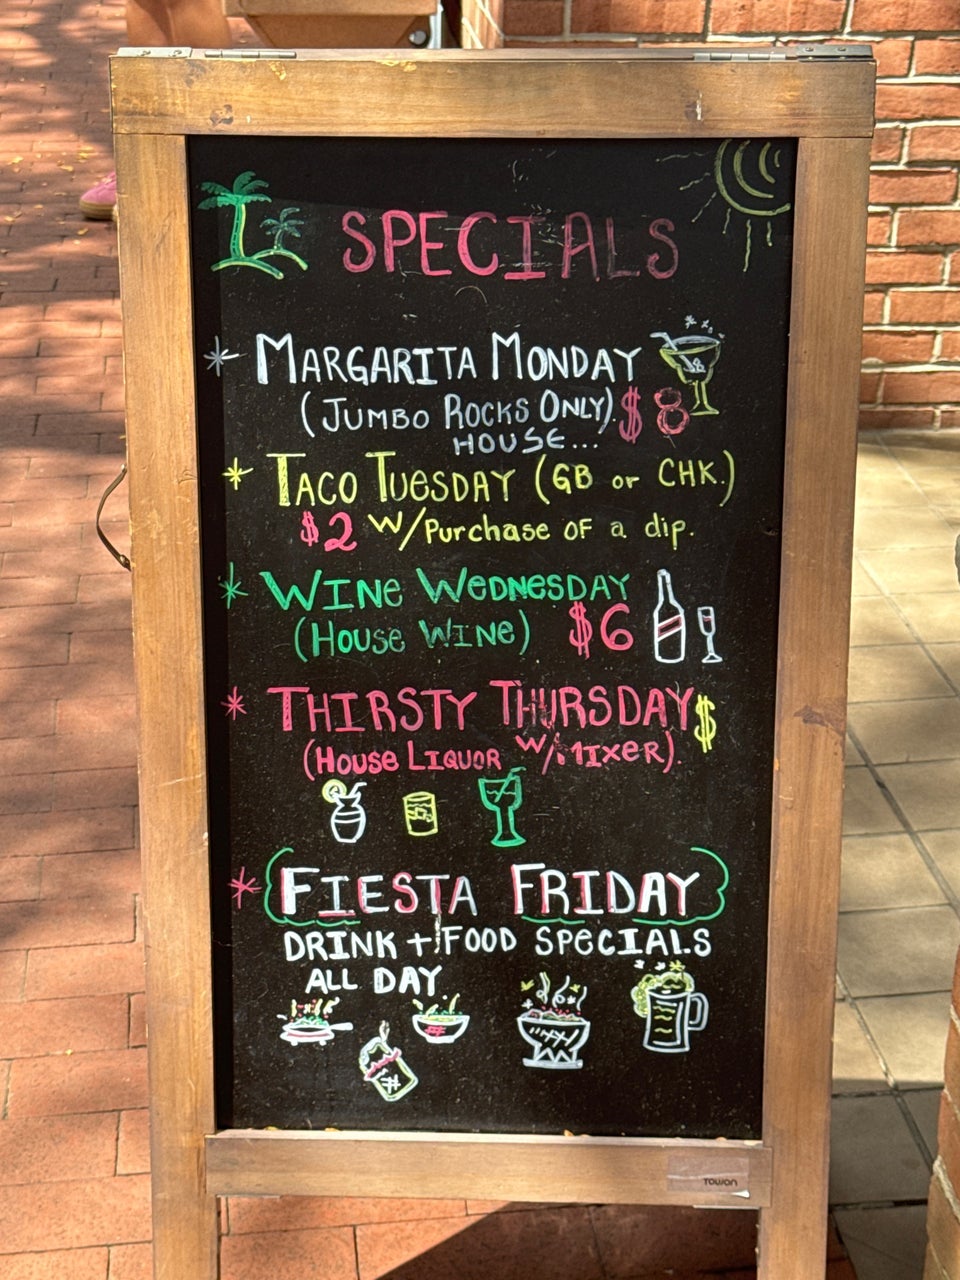 SPECIALS
* MARGARITA MONDAY
(JUMBO ROCKS ONLY). $8
HOUSE...
* TACO TUESDAY (GB or CHK.)
$2 W/Purchase OF a dip.
* WINE WEDNESDAY
(HOUSE WINE) $6
* THIRSTY THURSDAY $
(HOUSE LIQUOR W/MIXER).
* FIESTA FRIDAY
DRINK + FOOD SPECIALS
ALL DAY
TOWON